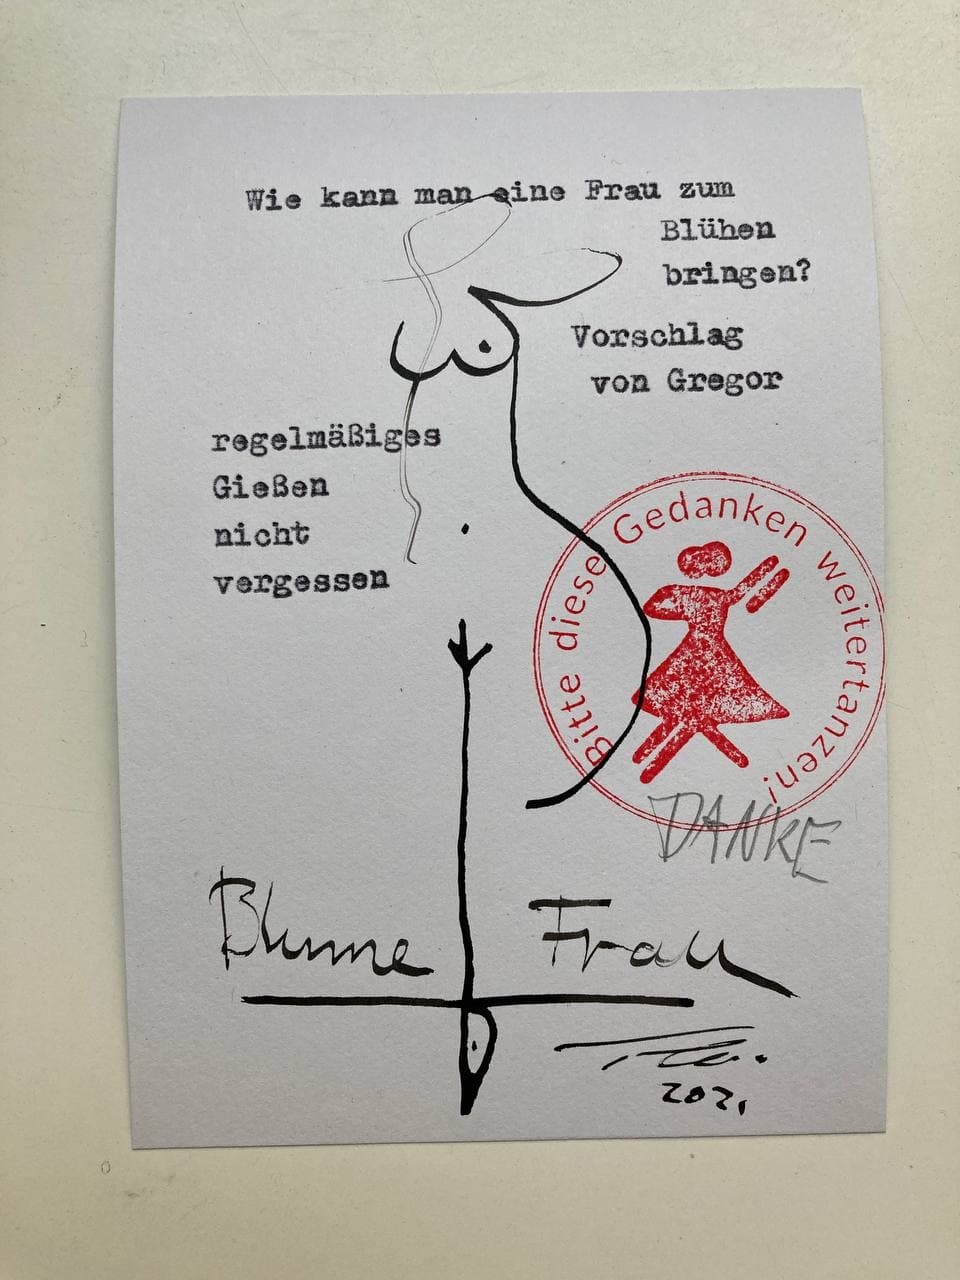 Wie kann man eine Frau zum
Blühen
bringen?
Vorschlag
von Gregor
regelmäßiges
Gießen
nicht
vergessen
Bitte diese Gedanken weitertanzen!
DANKE
Blume Frau
2021